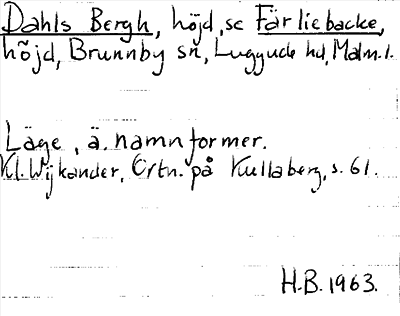 Dahls Bergh, höjd, se Färliebacke,
höjd, Brunnby sn, Luggude hd, Malm. l.
Läge, ä. namnformer.
Kl. Wijkander, Ortn. på Kullaberg, s. 61.
H.B. 1963.